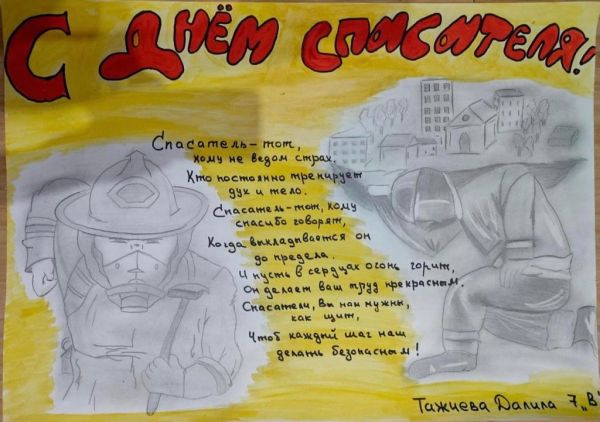 С ДНЁМ СПАСАТЕЛЯ!
Спасатель – тот,
кому не ведом страх,
Кто постоянно тренирует
дух и тело.
Спасатель – тот, кому
спасибо говорят,
Когда выкладывается он
до предела.
И пусть в сердцах огонь горит,
Он делает ваш труд прекрасным.
Спасатели, Вы нам нужны,
как щит,
Чтоб каждый шаг наш
делать безопасным!
Тажиева Далила 7 „В"